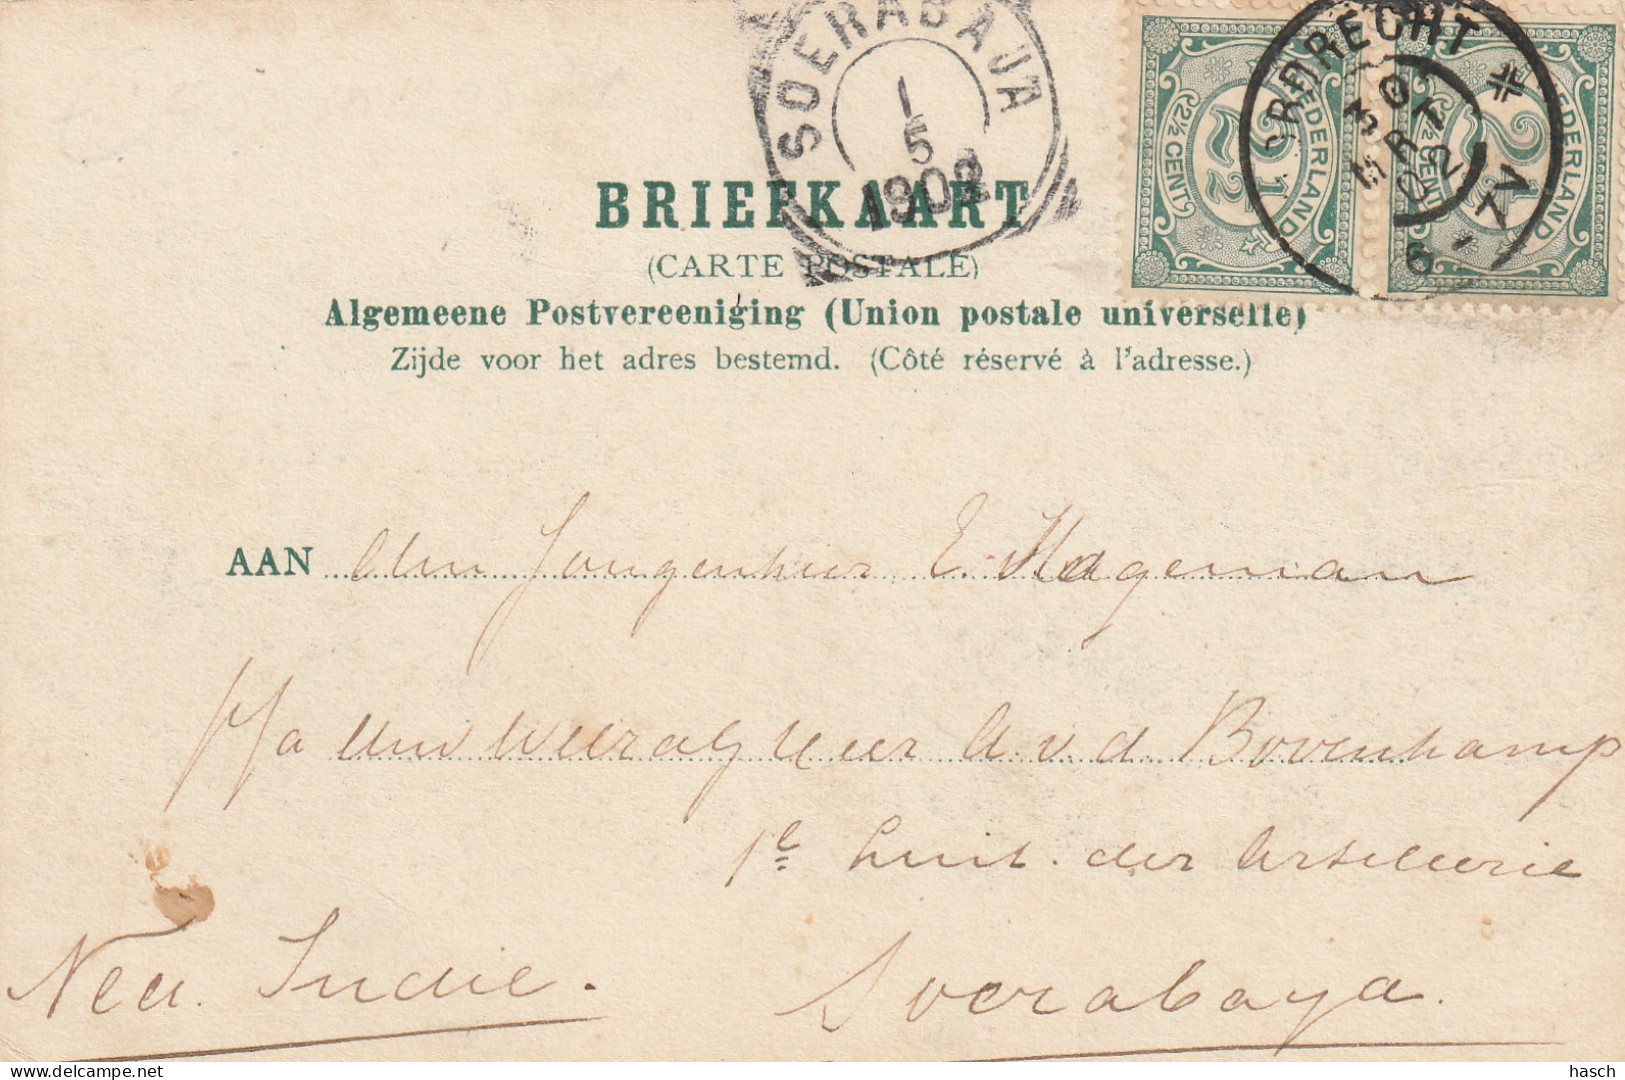 SOERABAJA
1
5
1902
DORDRECHT
30
MRT
02
6-7V
NEDERLAND
2½
2½ CENT
NEDERLAND
2½
2½ CENT
BRIEFKAART
(CARTE POSTALE)
Algemeene Postvereeniging (Union postale universelle)
Zijde voor het adres bestemd. (Côté réservé à l'adresse.)
AAN den Jongenheer E. Hageman
p/a den Weledlg Heer A. v. d. Bovenkamp
1e Luit. der Artillerie
Ned. Indie.
Soerabaya.
hasch